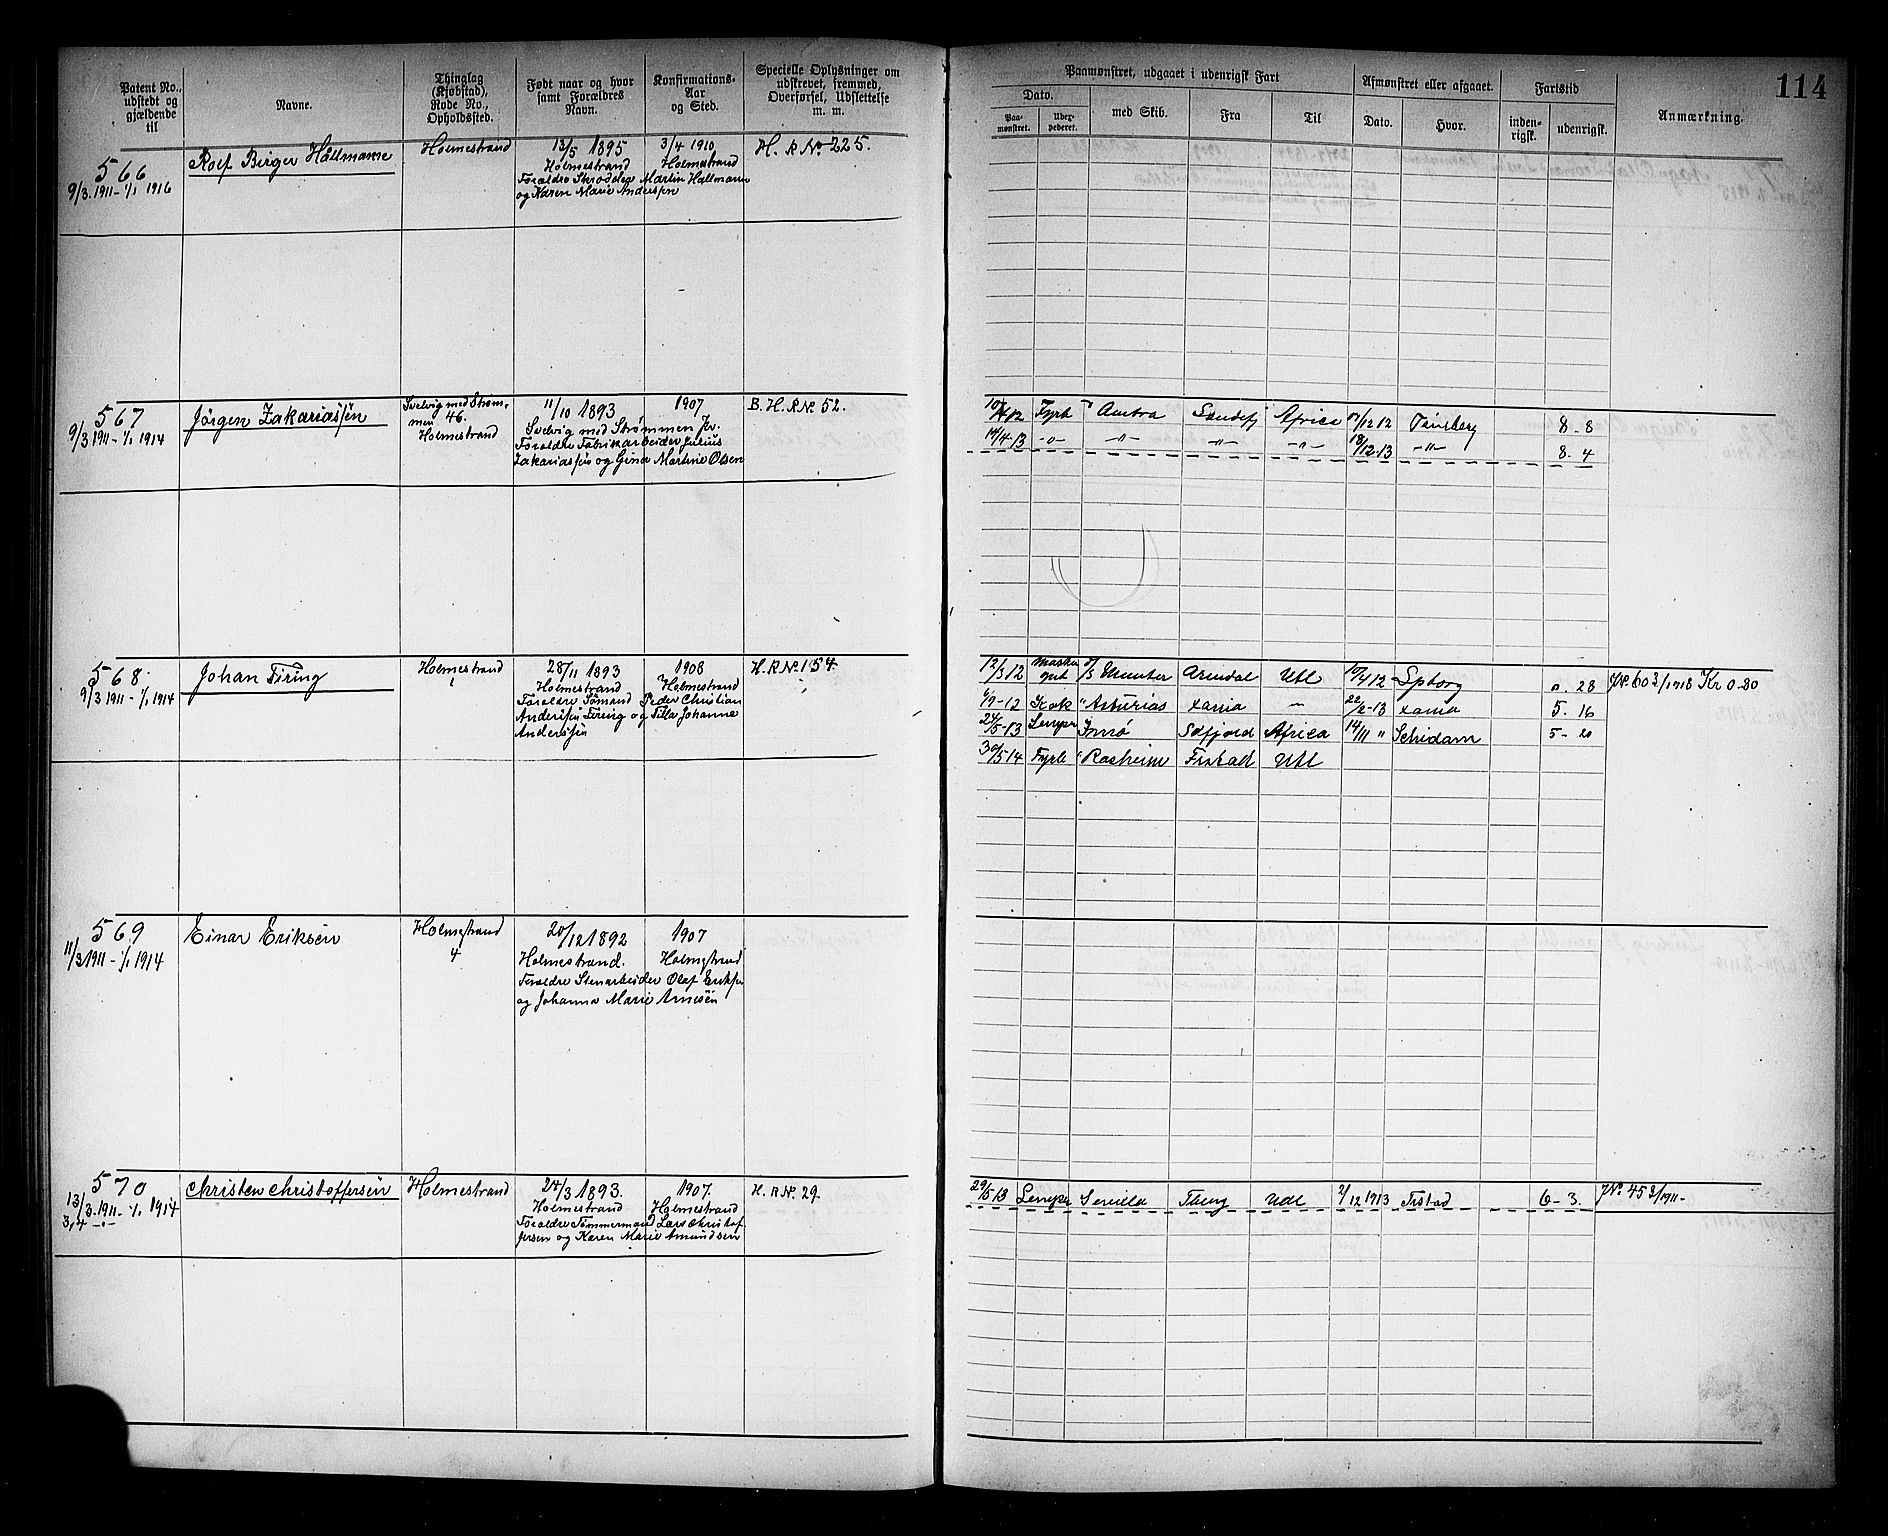 114
Patent No., udstedt og gjældende til
Navne.
Thinglag (Kjøbstad), Rode No., Opholdssted.
Født naar og hvor samt Forældres Navn.
Konfirmations-Aar og Sted.
Specielle Oplysninger om udskrevet, fremmed, Overførsel, Udslettelse m. m.
Paamønstret, udgaaet i udenrigsk Fart
Dato.
Paamønstret.
med Skib.
Fra
Til
Afmønstret eller afgaaet.
Dato.
Hvor.
Fartstid
inden-rigsk.
udenrigsk.
Anmærkning.
566
9/3 1911 - 1/1 1916
Rolf Birger Hallmann
Holmestrand
13/5 1895
Holmestrand
3/4 1910
Holmestrand
H. R No 225.
Forældre Skrædder Martin Hallmann
og Karen Marie Andersen
567
9/3 1911 - 1/1 1914
Jörgen Zakariassen
Svelvig med Strøm-
men 46.
Holmestrand
11/10 1893
Svelvig med Strømmen
1907
Forældre Fabrikarbeider Julius
Zakariassen og Gina Martine Olsen
B. H. R No 52.
Fyrb Antra Sandefj Africa 12 12 Tønsberg 8 - 8
14/4 13 -"- -"- -"- -"- 18/12 13 -"- 8. 4
568
9/3 1911 - 1/1 1914
Johan Firing
Holmestrand
1
28/11 1893
Holmestrand
1908
Holmestrand
Forældre Sømand Peder Christian
Andersen Firing og Tilla Johanne
Andersen
H. R No 154.
12/3 12 Munter Arendal Utl 12 Spborg 28
9-12 Kok " Asturias xania - 22/2-13 xania 5. 16
24/5-13 Lemper Sdfjord Africa 14/11 " Schidam 5 - 20
30/5 14 Fyrb " Rasheim Frstad Utl
Kr 0-80
569
11/3 1911 - 1/1 1914
Einar Eriksen
Holmestrand
4
20/12 1892
Holmestrand.
1907
Holmestrand
Forældre Stenarbeider Olaf Eriksen
og Johanna Marie Arnesen
570
13/3 1911 - 1/1 1914
3,4 -"-
Christen Christoffersen
Holmestrand
24/3 1893.
Holmestrand
1907.
Holmestrand
Forældre Tømmermand Lars Christof
fersen og Karen Marie Amundsen
H. R No 29.
29/5 13 Lemper Sevilla Tberg Udl 2/12 1913 Frstad 6 - 3. JNo 452/1911-